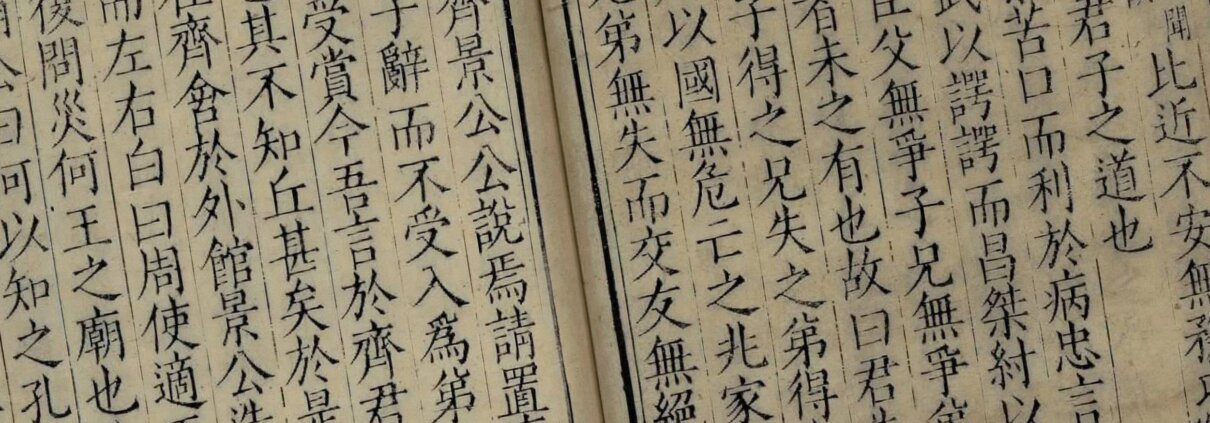 聞比近不安無務
君子之道也
苦口而利於病忠言
武以諤諤而昌桀紂以
臣父無爭子兄無爭
有未之有也故曰君
子得之兄失之第得
以國無危亡之兆家
第無失而交友無絕
齊景公公說焉請置
子辭而不受入為第
受賞今吾言於齊君
其不知丘甚矣於是
在齊舍於外館景公造
而左右白曰周使適
復問災何王之廟也
公曰何以知之孔